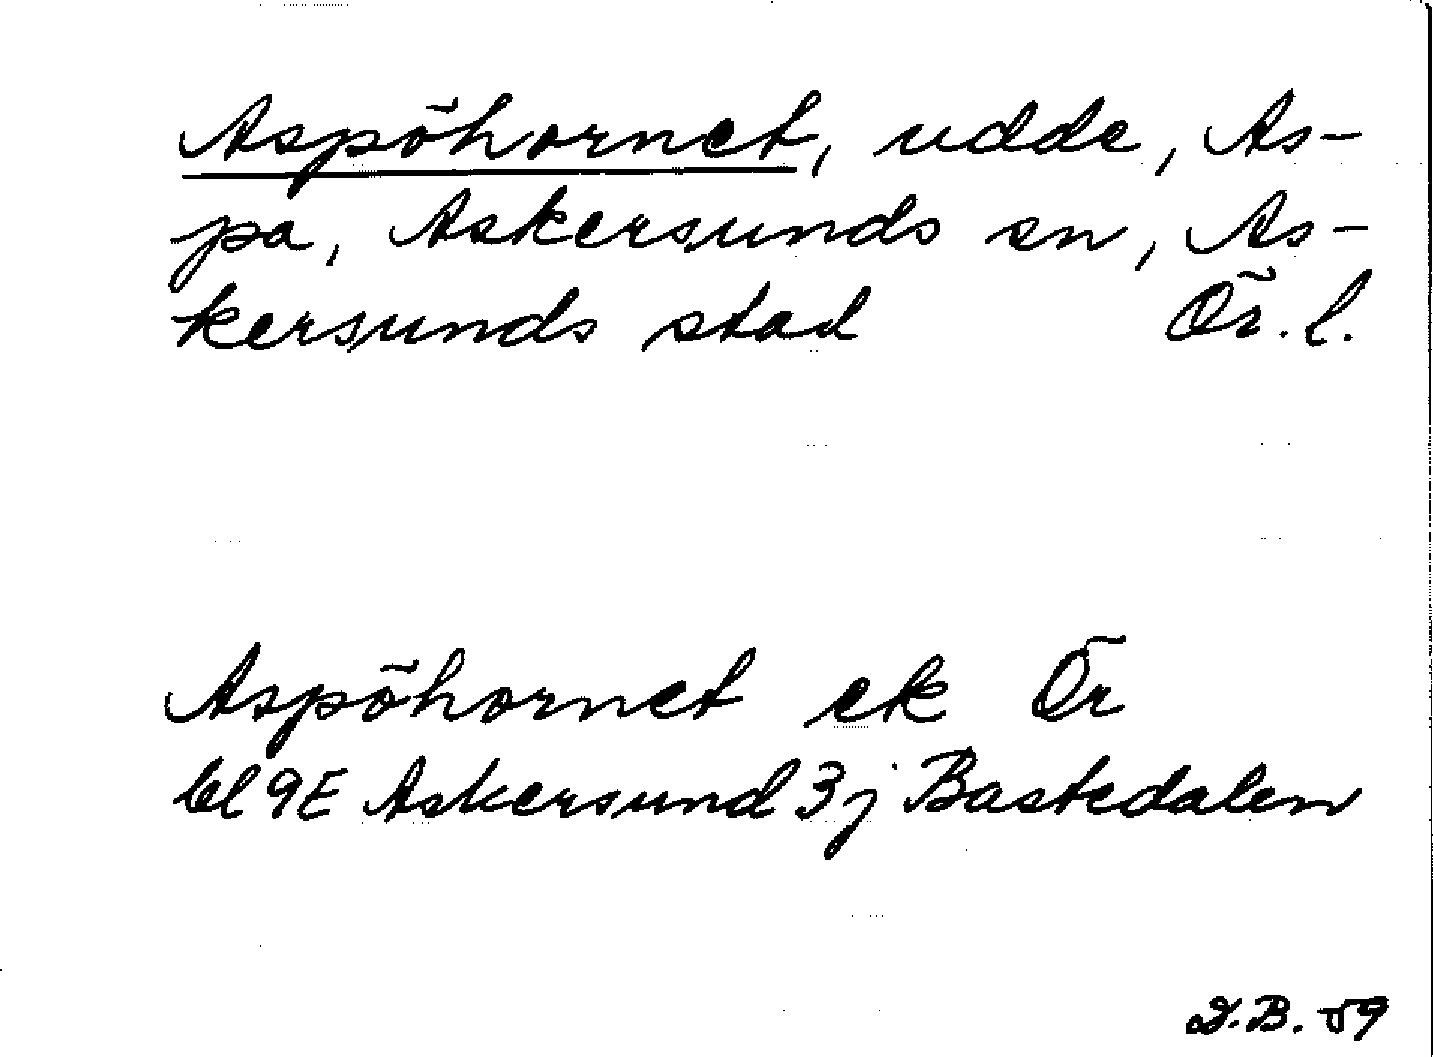 Aspöhornet, udde, As-
pa, Askersunds sn, As-
kersunds stad Ör. l.
Aspöhornet ek Ör
bl 9E Askersund 3j Bastedalen
I.B. 59